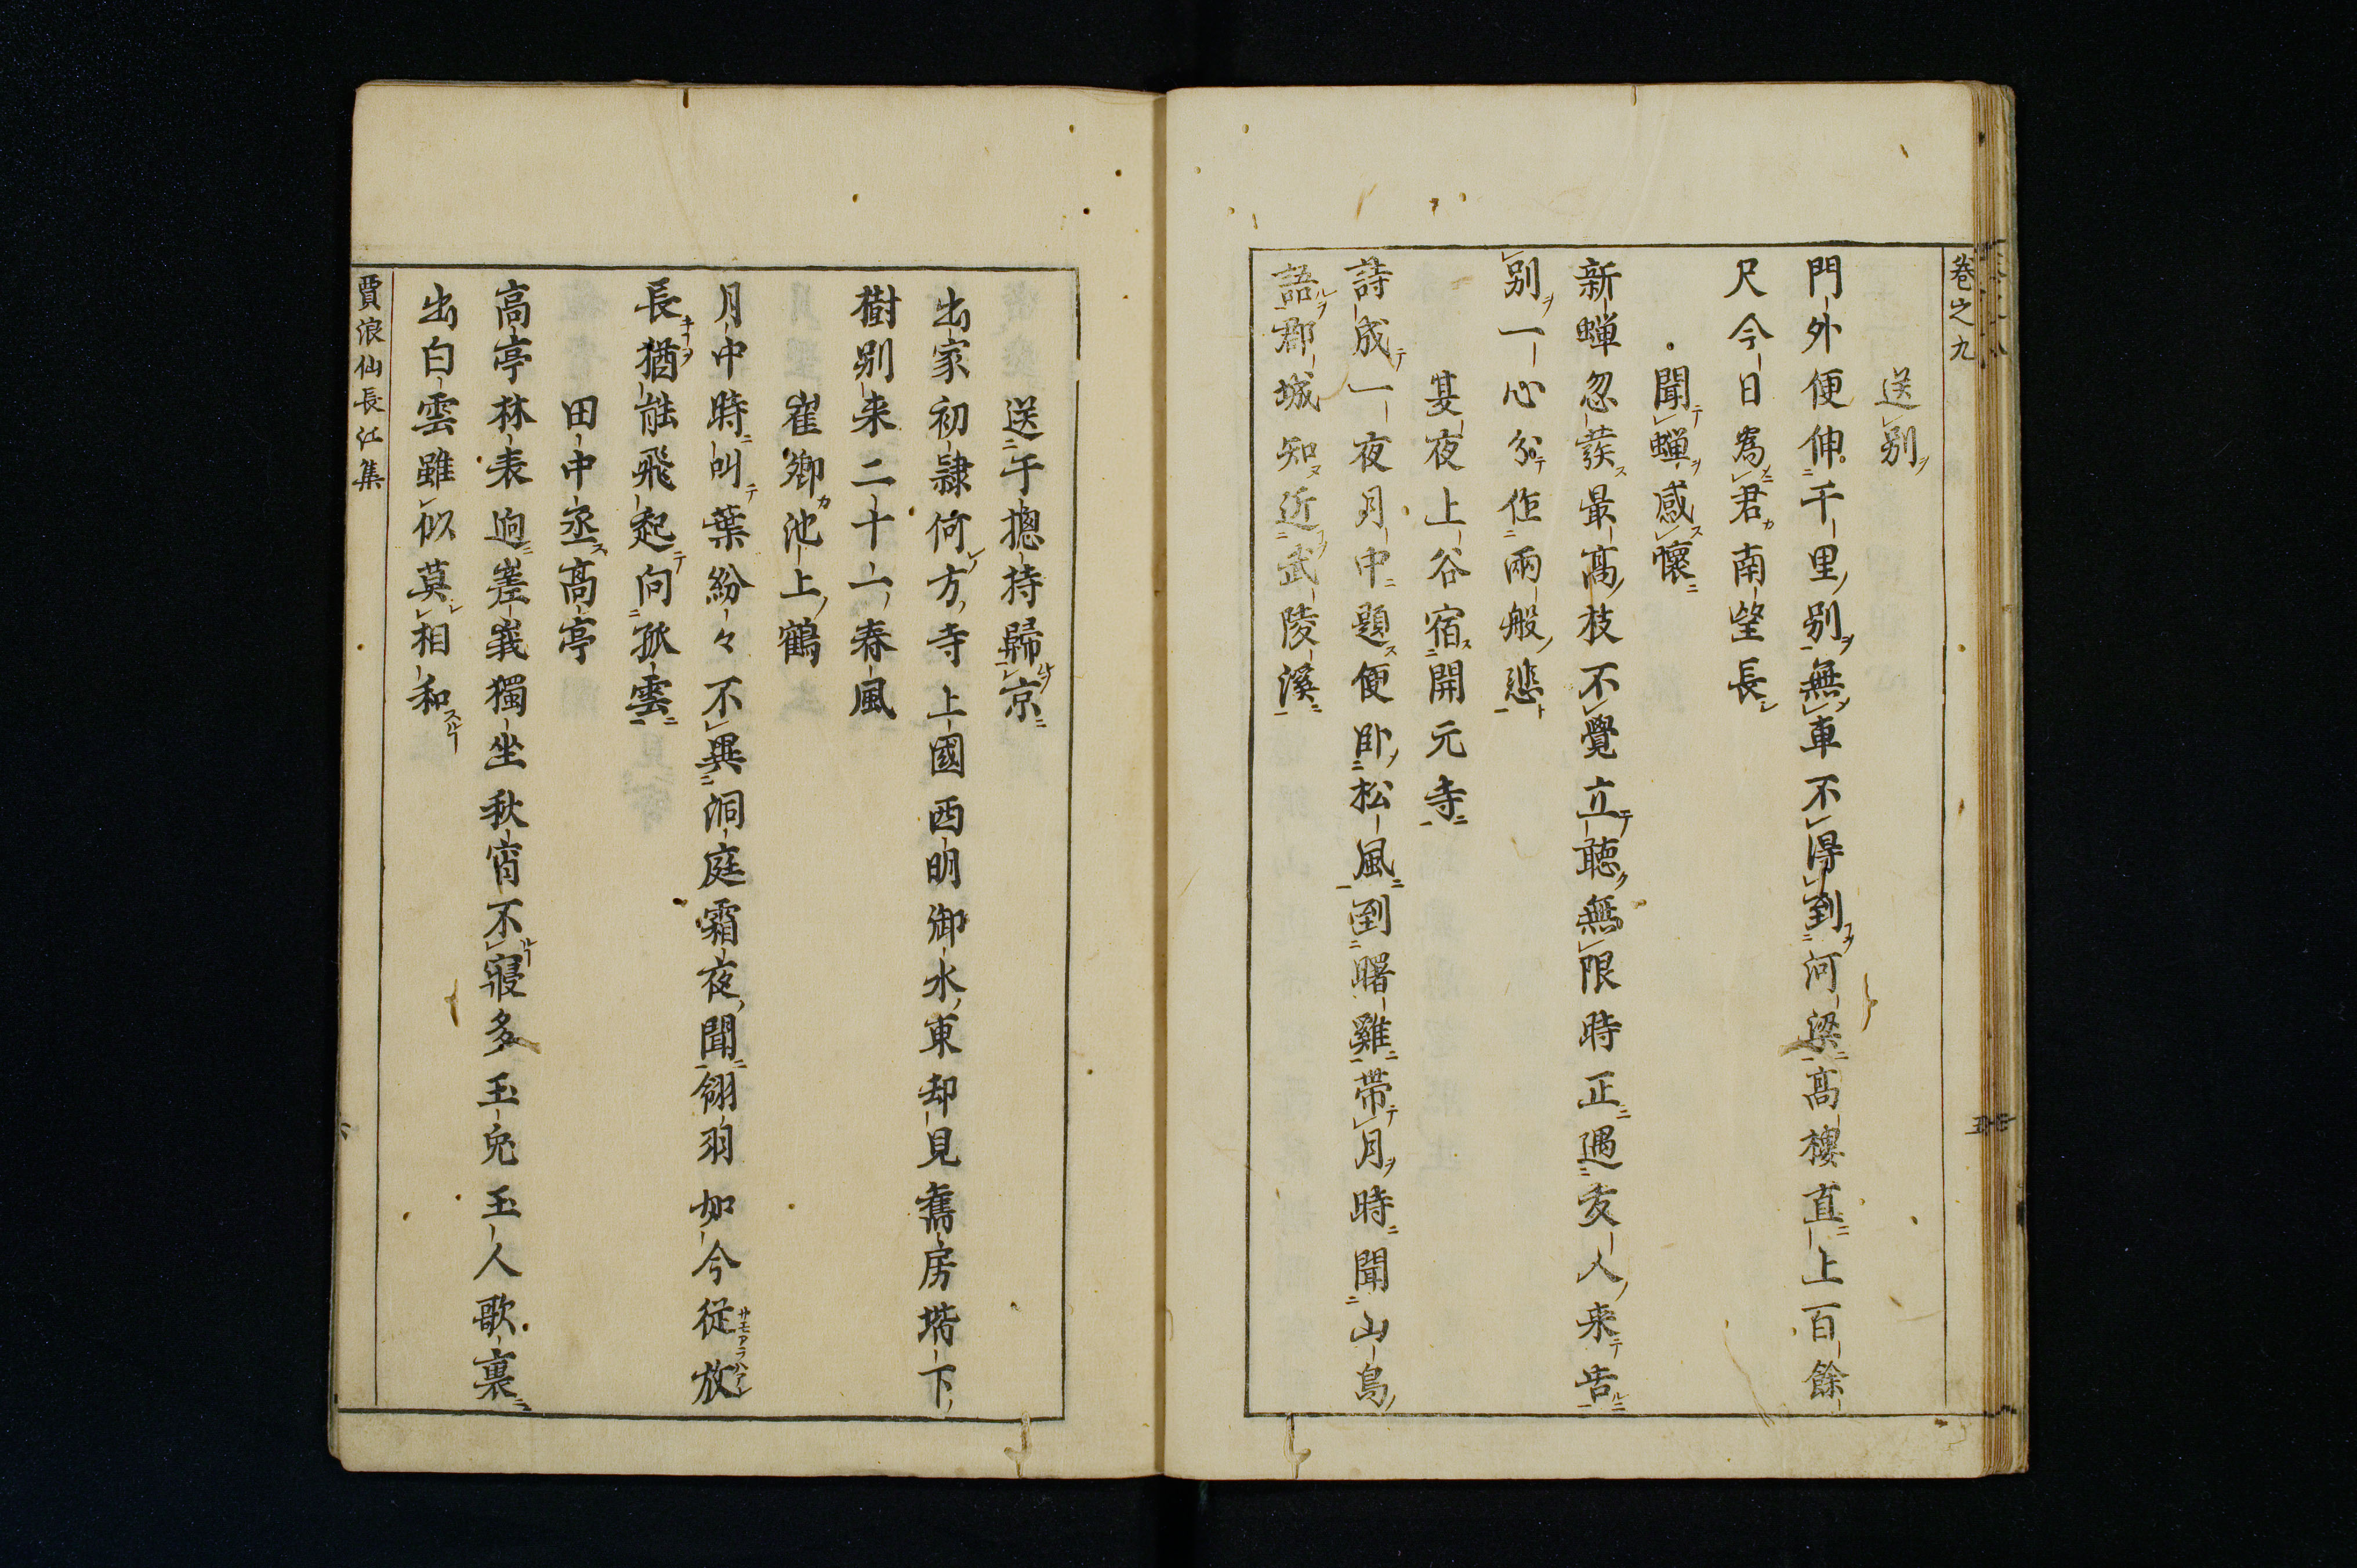 卷之九
送別
門外便伸千里別無車不得到河梁高樓直上百餘
尺今日為君南望長
聞蟬感懷
新蟬忽發最高枝不覺立聽無限時正遇友人来告
別一心分作兩般悲
夏夜上谷宿開元寺
詩成一夜月中題便臥松風到曙雞帶月時聞山鳥
語郡城知近武陵溪
送于揔持歸京
出家初隷何方寺上國西明御水東却見舊房堦下
樹別来二十一春風
崔卿池上鶴
月中時叫葉紛々不異洞庭霜夜聞翎羽如今従放
長猶能飛起向孤雲
田中丞高亭
高亭林表逈嵳峩獨坐秋宵不寢多玉兔玉人歌裏
出白雲雖似莫相和
賈浪仙長江集